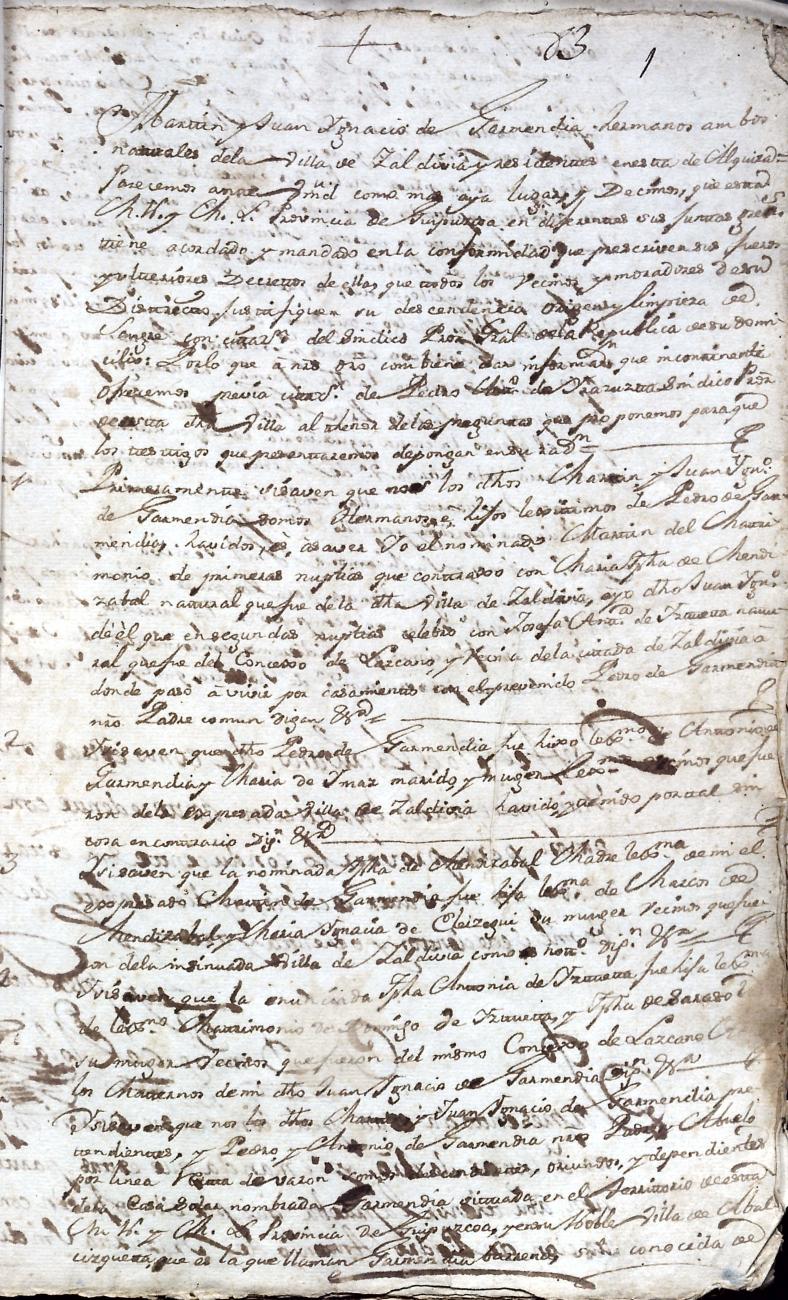 83 1
Martin y Juan Ygnacio de Garmendia hermanos ambos
naturales dela Villa de Zaldivia y residentes enesta de Alquiza
Parecemos ante Vmd como mas aya lugar, y Decimos, que esta
M. N. y M. L. Provincia de Guipuzcoa en diferentes sus Juntas
tiene acordado y mandado enla conformidad que prescriven sus fueros
y ulteriores Decretos de ella, que todos los vecinos, y moradores de su
Distrito, justifiquen su descendencia origen y limpieza de
Sangre con citazn. del Sindico Pror. Gral dela Republica de su domi
cilio: Por lo que a nro dro combiene dar informazn que incontinenti
ofrecemos previa citazn. de Pedro de Yraruzta Sindico Pror.
de esta dha Villa al thenor delas preguntas que pro ponemos para que
los testigos que presentaremos depongan en su razn
1 Primeramente si saven que nos los dhos Martin y Juan Ygno.
de Garmendia somos Hermanos, e hijos lexitimos de Pedro de Gar
mendia, havidos, es, asaver Yo el nominado Martin del Matri
monio de primeras nuptias que contraxo con Maria Jpha de Mendi
zabal natural que fue de la dha Villa de Zaldivia, e yo dho Juan Ygno.
de el que en segundas nuptias celebro con Josefa Anta. de Yztueta natu
ral que fue del Concejo de Lazcano, y vecina de la citada de Zaldivia a
donde paso a vivir por casamiento con el prevenido Pedro de Garmendia
nro. Padre comun digan &ra
2 Yt si saven que dho Pedro de Garmendia fue hixo lexmo. de Antonio de
Garmendia y Maria de Ymaz marido, y muger vecinos que fue
ron dela expresada Villa de Zaldivia havido, y tenido por tal sin
cosa en contrario Dign. &ra
3 Yt si saven que la nominada Jpha de Mendizabal Madre lexma. de mi el
expresado Martin de Garmendia fue hija lexma. de Marcos de
Mendizabal, y Maria Ygnacia de Eleizegui su muger vecinos que fue
ron dela insinuada Villa de Zaldivia como es notto. Dign. &ra
Yt si saven que la enunciada Jpha Antonia de Yztueta fue hija lexma
de lexmo. Matrimonio de Domingo de Yztueta, y Jpha de
su muger vecinos que fueron del mismo Concejo de Lazcano
los Maternos de mi dho Juan Ygnacio de Garmendia Dign. &ra
Yt si saven que nos los dhos Martin y Juan Ygnacio de Garmendia pre
tendientes, y Pedro y Antonio de Garmendia nros Padre, y Abuelo
por linea recta de varon somos descendientes, oriundos, y dependientes
dela Casa Solar nombrada Garmendia situada en el territorio de esta
M. N. y M. L. Provincia de Guipuzcoa, y en su Noble Villa de Abal
cizqueta, que es la que llaman Garmendia barrena, conocida de